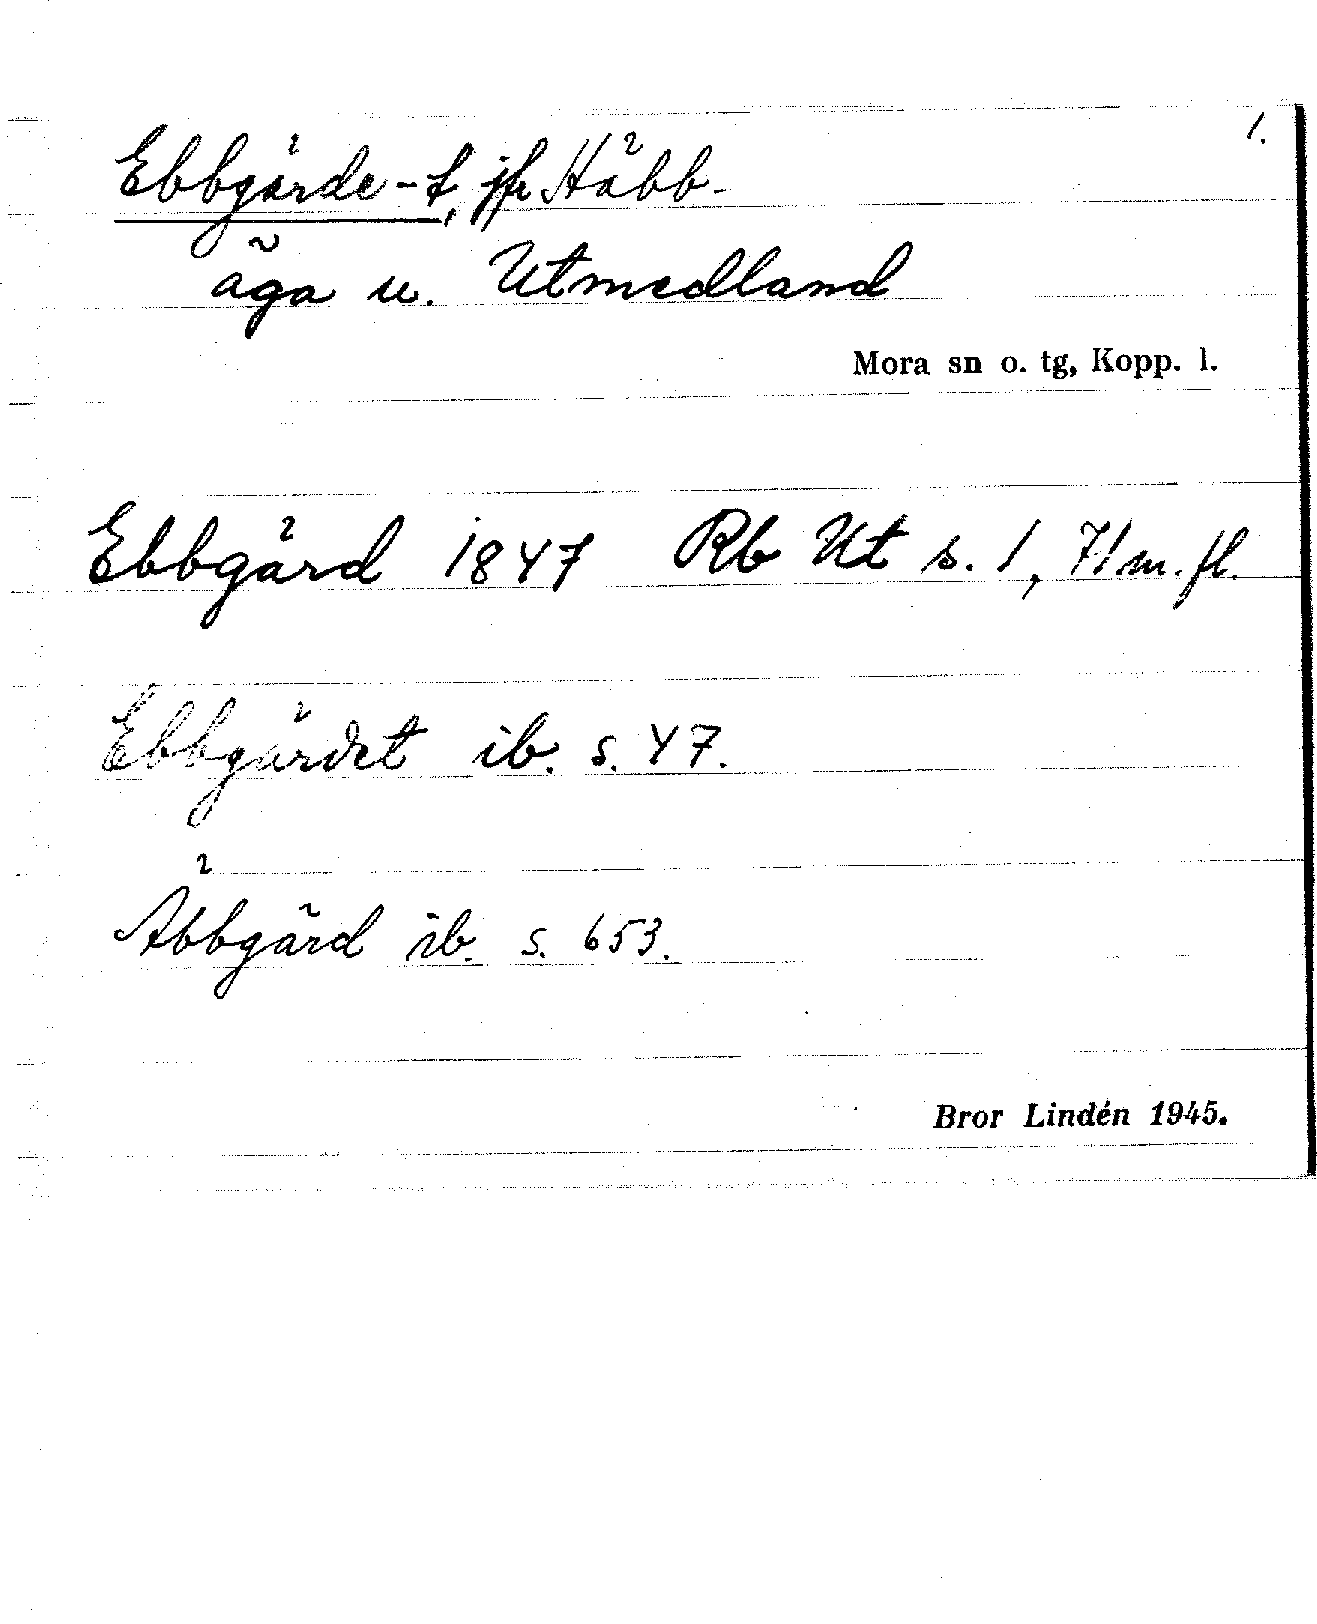 1.
Ebbgärde-t, jfr Häbb-
äga u. Utmedland
Mora sn o. tg, Kopp. l.
Ebbgärd 1847 Rb Ut s. 1, 71 m. fl.
Ebbgärdet ib. s. 47.
Äbbgärd ib. s. 653.
Bror Lindén 1945.